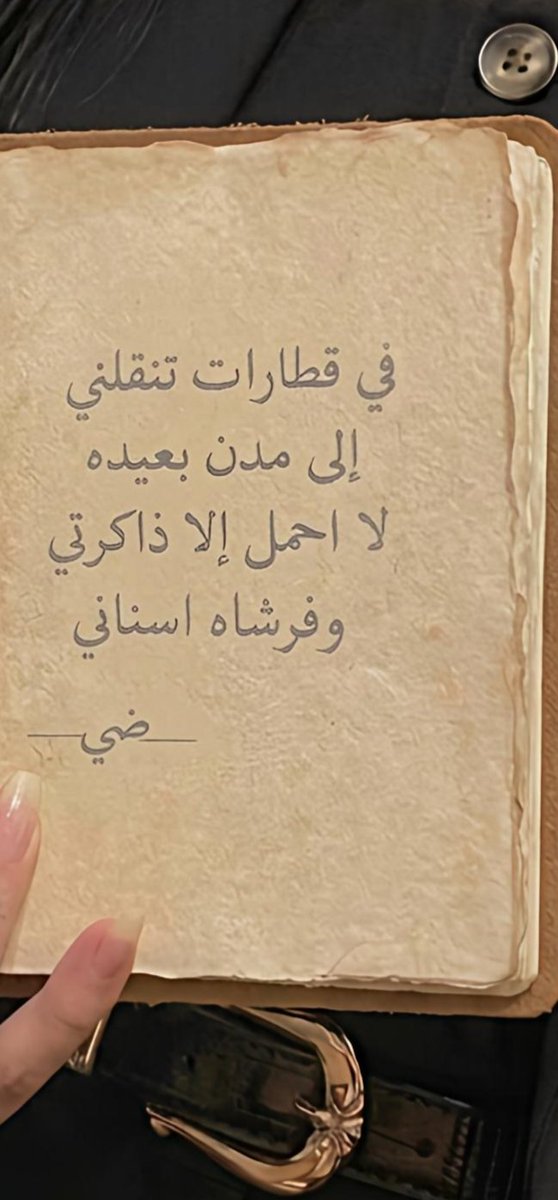 في قطارات تنقلني
إلى مدن بعيده
لا احمل إلا ذاكرتي
وفرشاه اسناني
ضي